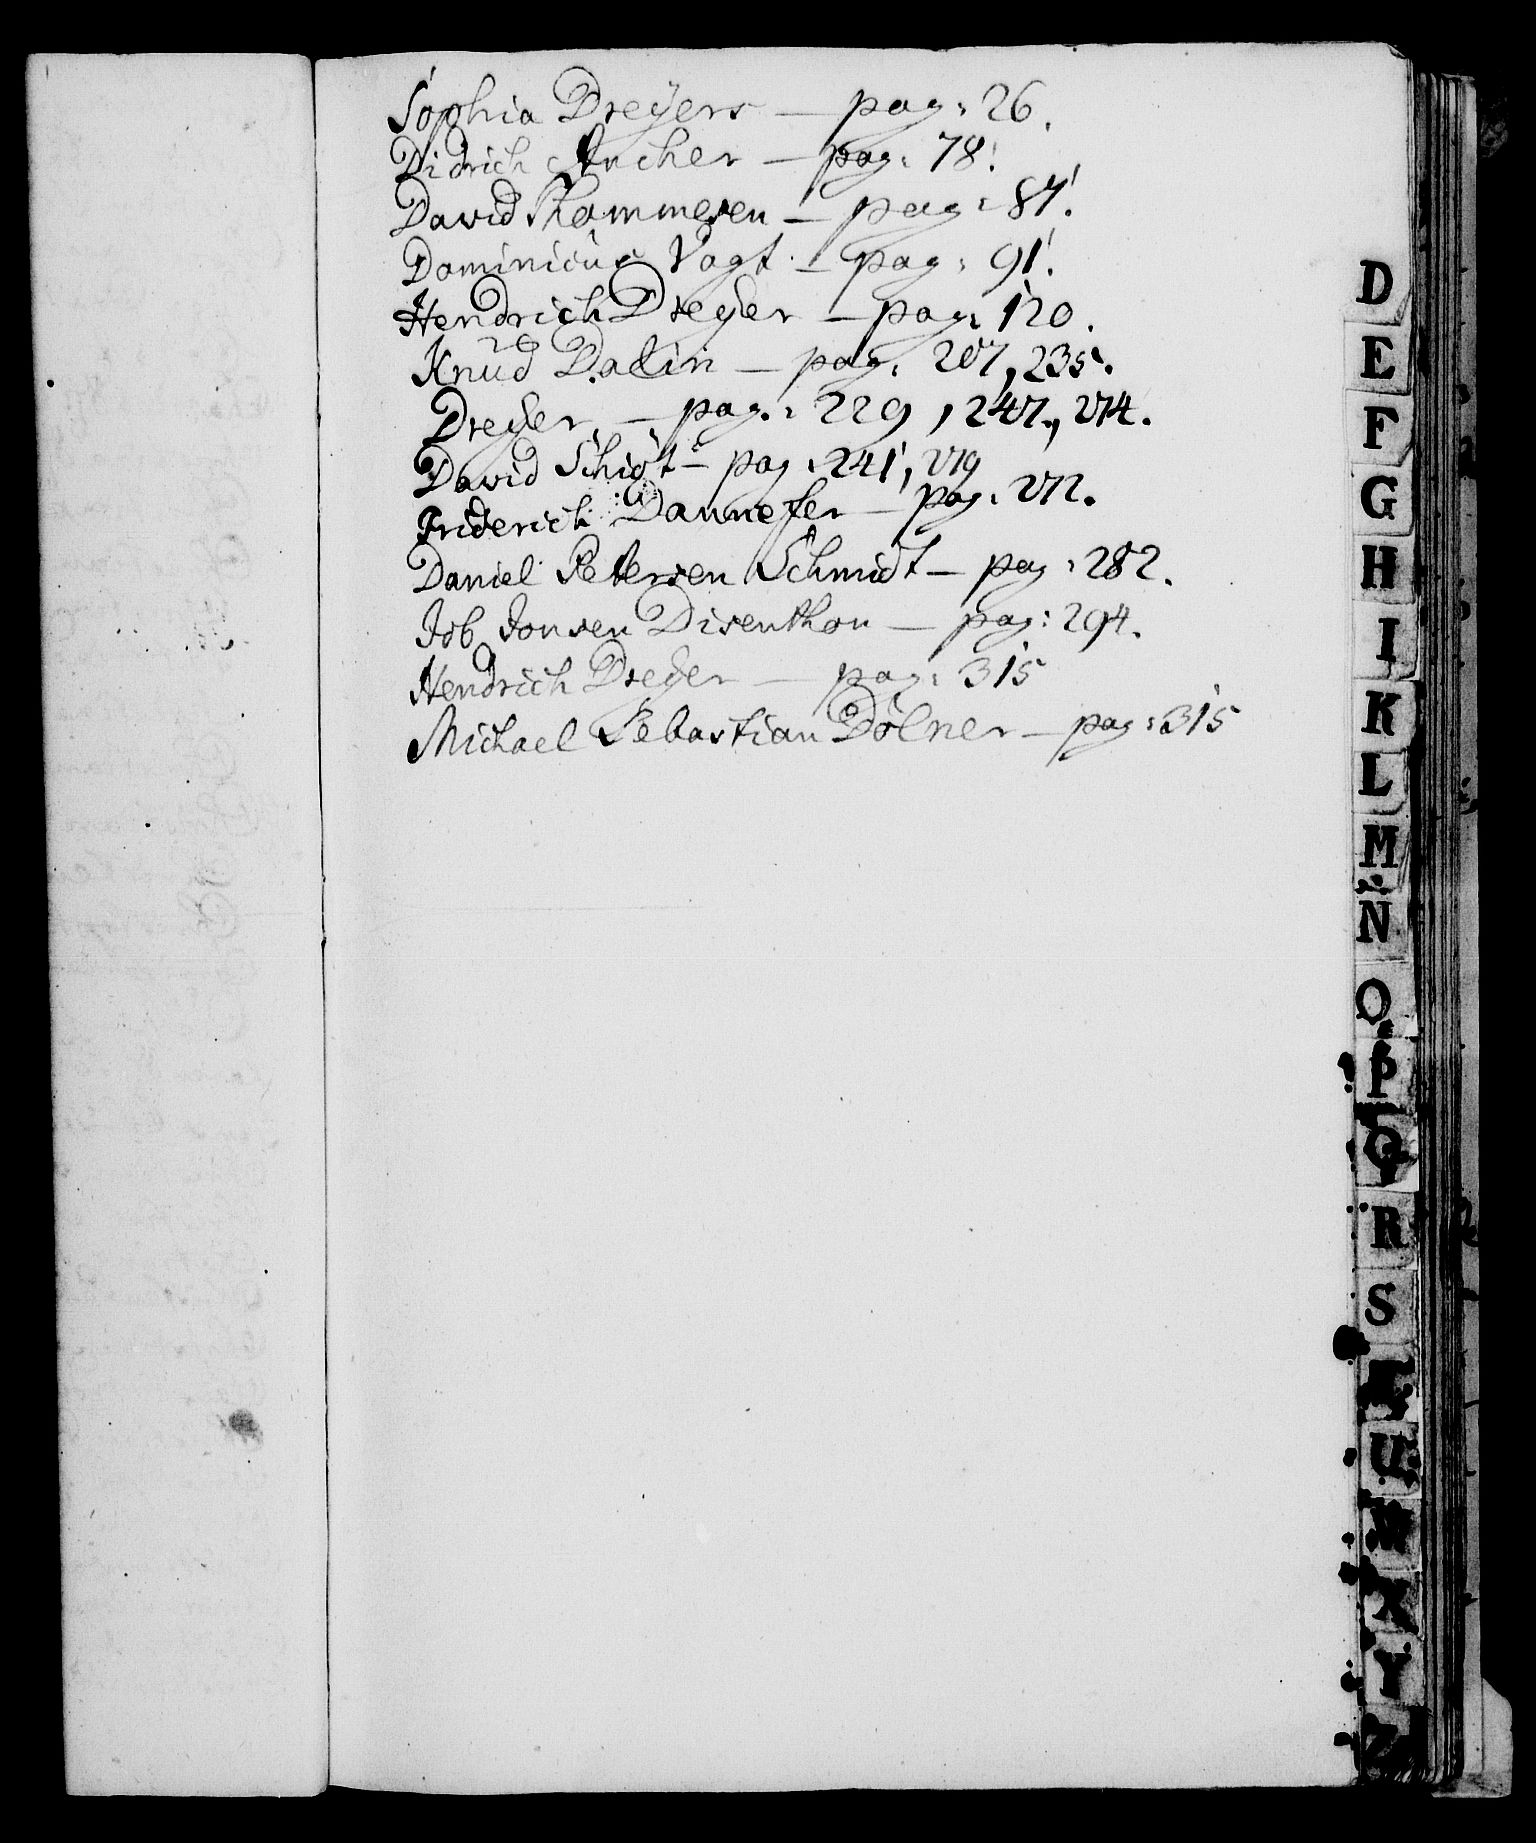 Sophia Dreÿers — pag: 26.
Didrich Ancher — pag: 78.
David Thommesen — pag: 87.
Dominicus Vogt — pag: 91.
Hendrich Dreÿer — pag: 120.
Knud Dalin — pag: 207, 235.
Dreÿer — pag.: 229, 247., 274.
David Schigt — pag: 241, 279
Friderich Dannefer — pag: 272.
Daniel Petersen Schmidt — pag: 282.
Job Jonsen Disenthon — pag: 294.
Hendrich Dreÿer — pag: 315
Michael Sebastian Dölner — pag: 315
D
E
F
G
H
I
K
L
M
N
O
P
Q
R
S
T
U
W
X
Y
Z